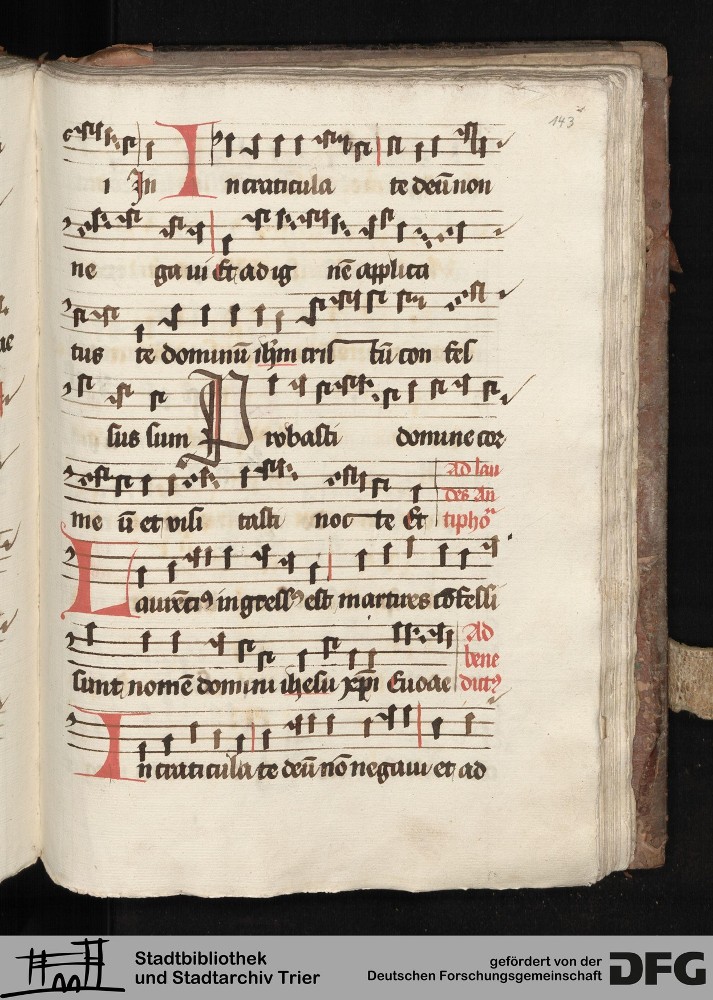 143
i In In craticula te deū non
ne ga ui Et ad ig nē applica
tus te dominū ihm cris tū con fes
sus sum Probasti domine cor
me ū et visi tasti noc te Et Ad lau
des An
tipho
Laurēci⁹ ingress⁹ est martires cōfessi
sunt nomē domini ihesu xp̄i Euoae Ad
bene
dict⁹
In craticula te deū nō negaui et ad
Stadtbibliothek
und Stadtarchiv Trier
gefördert von der
Deutschen Forschungsgemeinschaft DFG